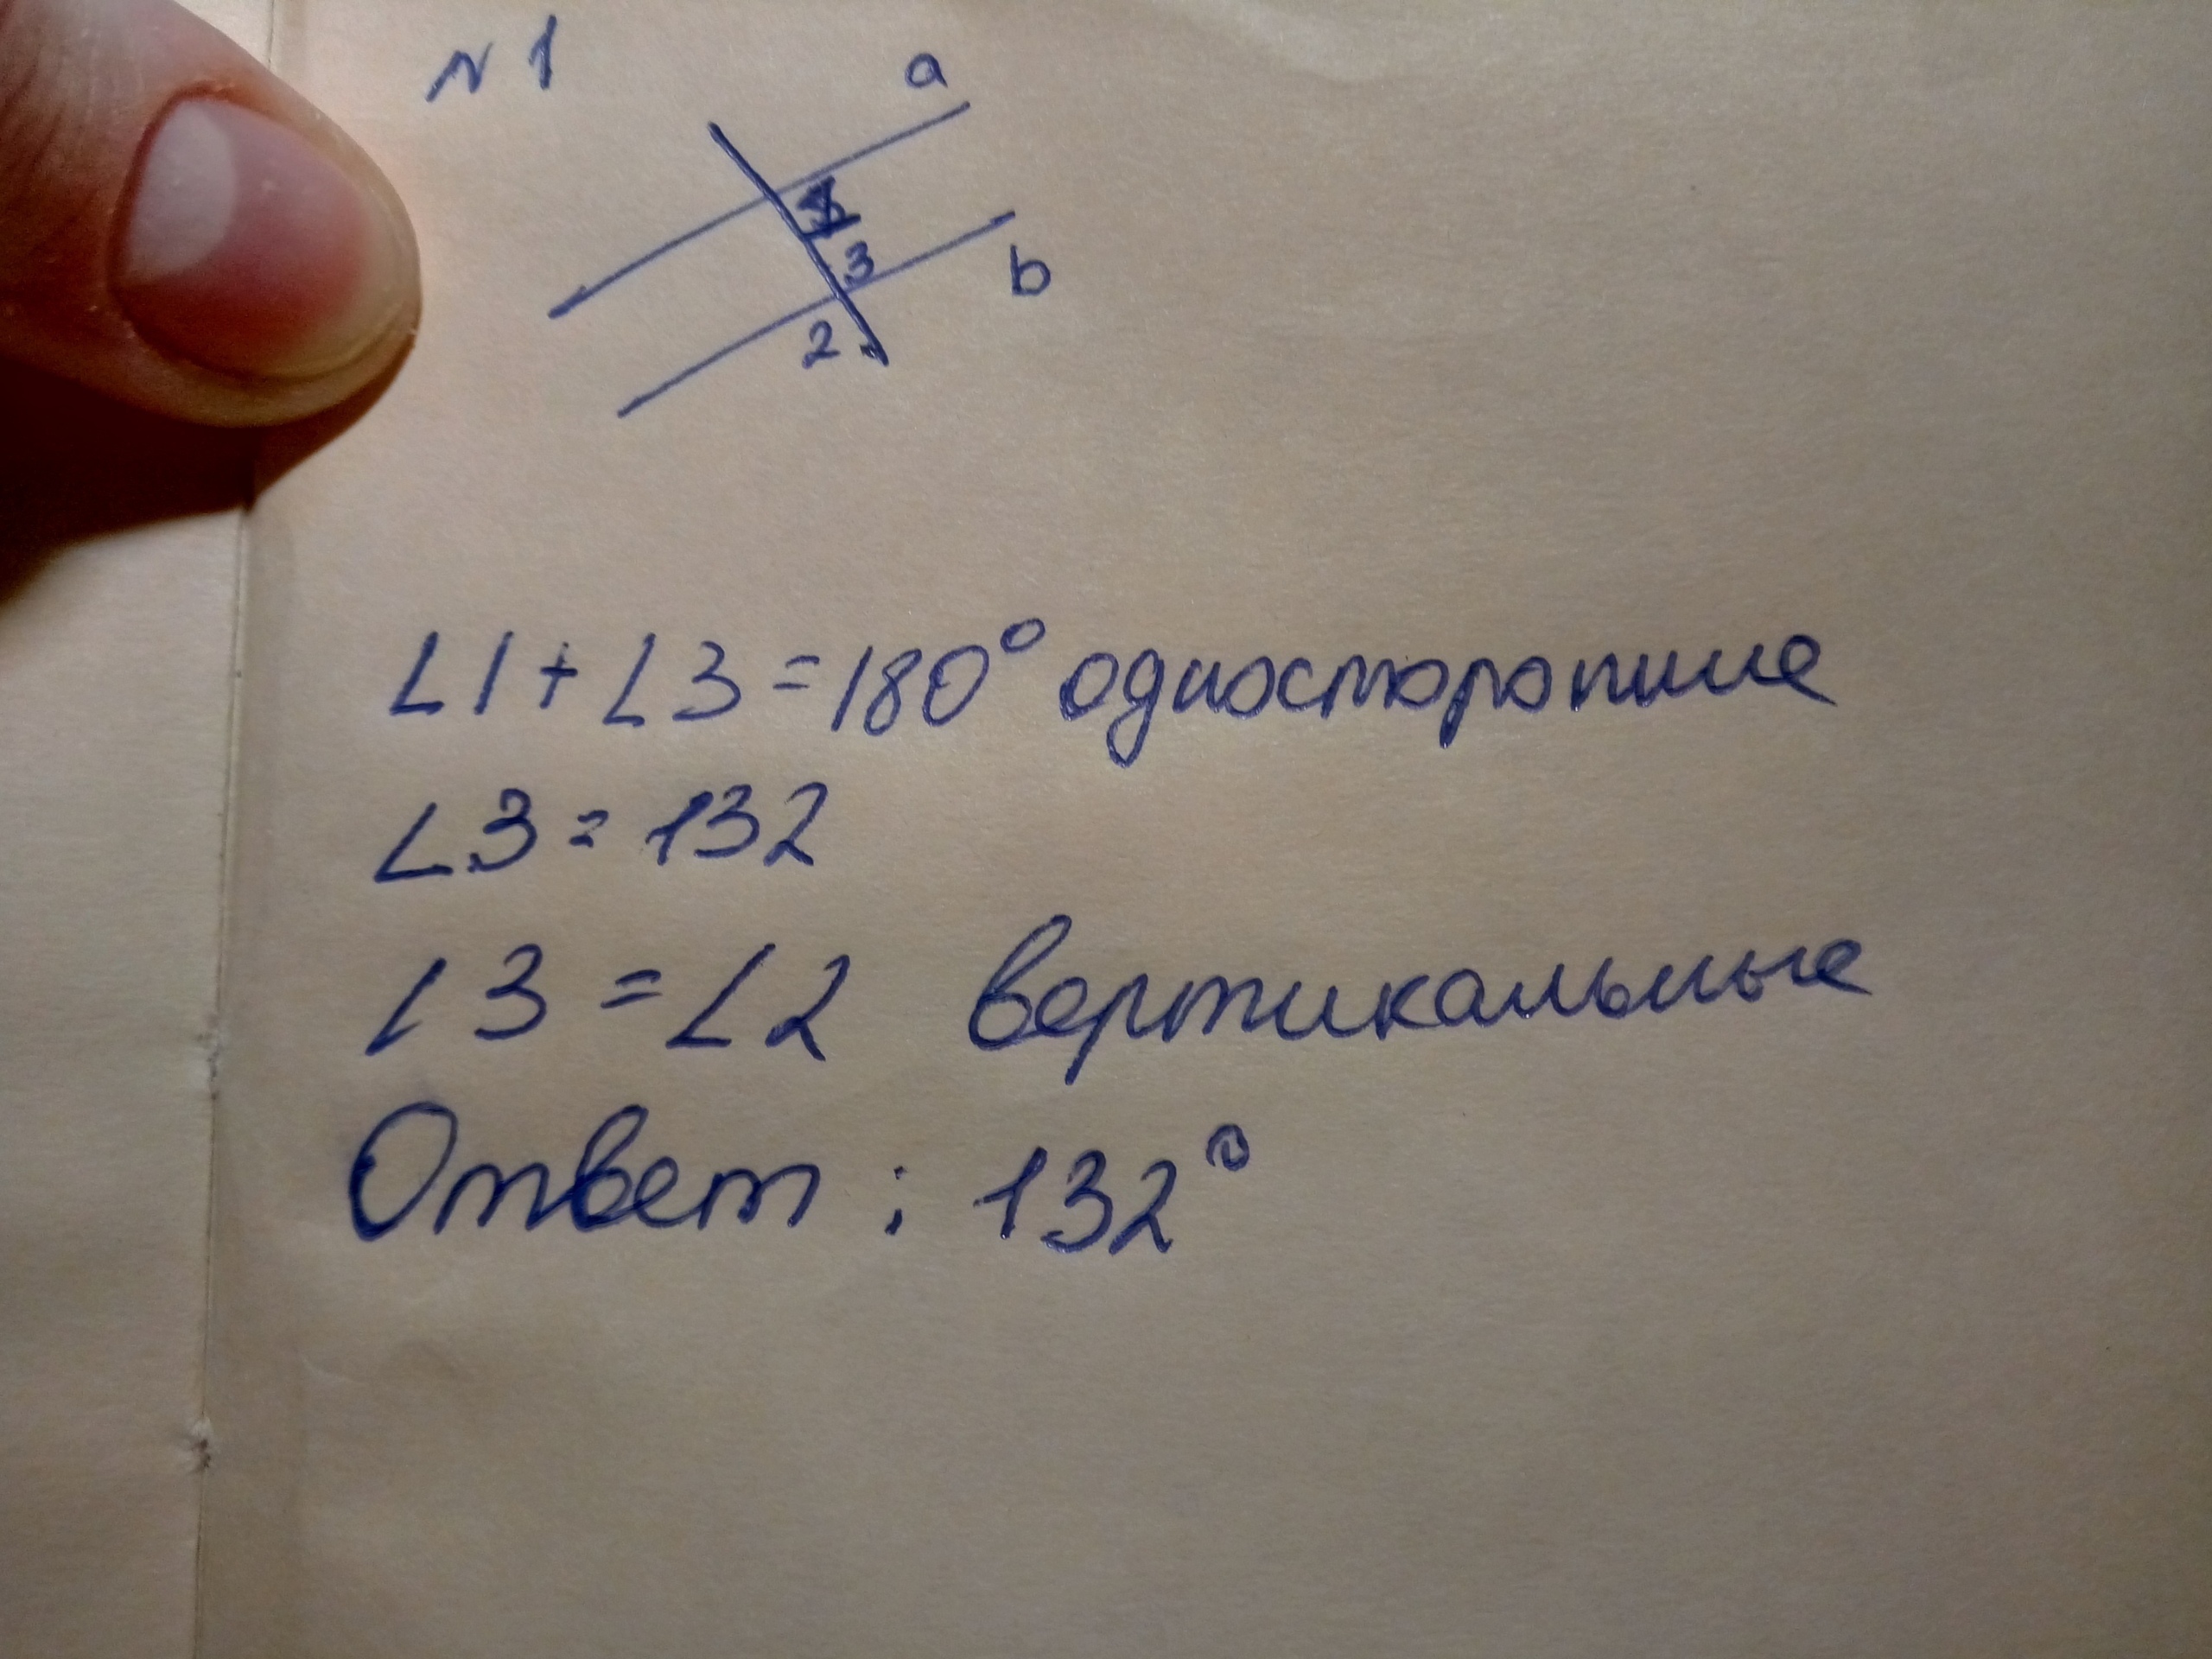 N 1
a
1
3
b
2
∠1 + ∠3 = 180° односторонние
∠3 = 132
∠3 = ∠2 вертикальные
Ответ : 132°